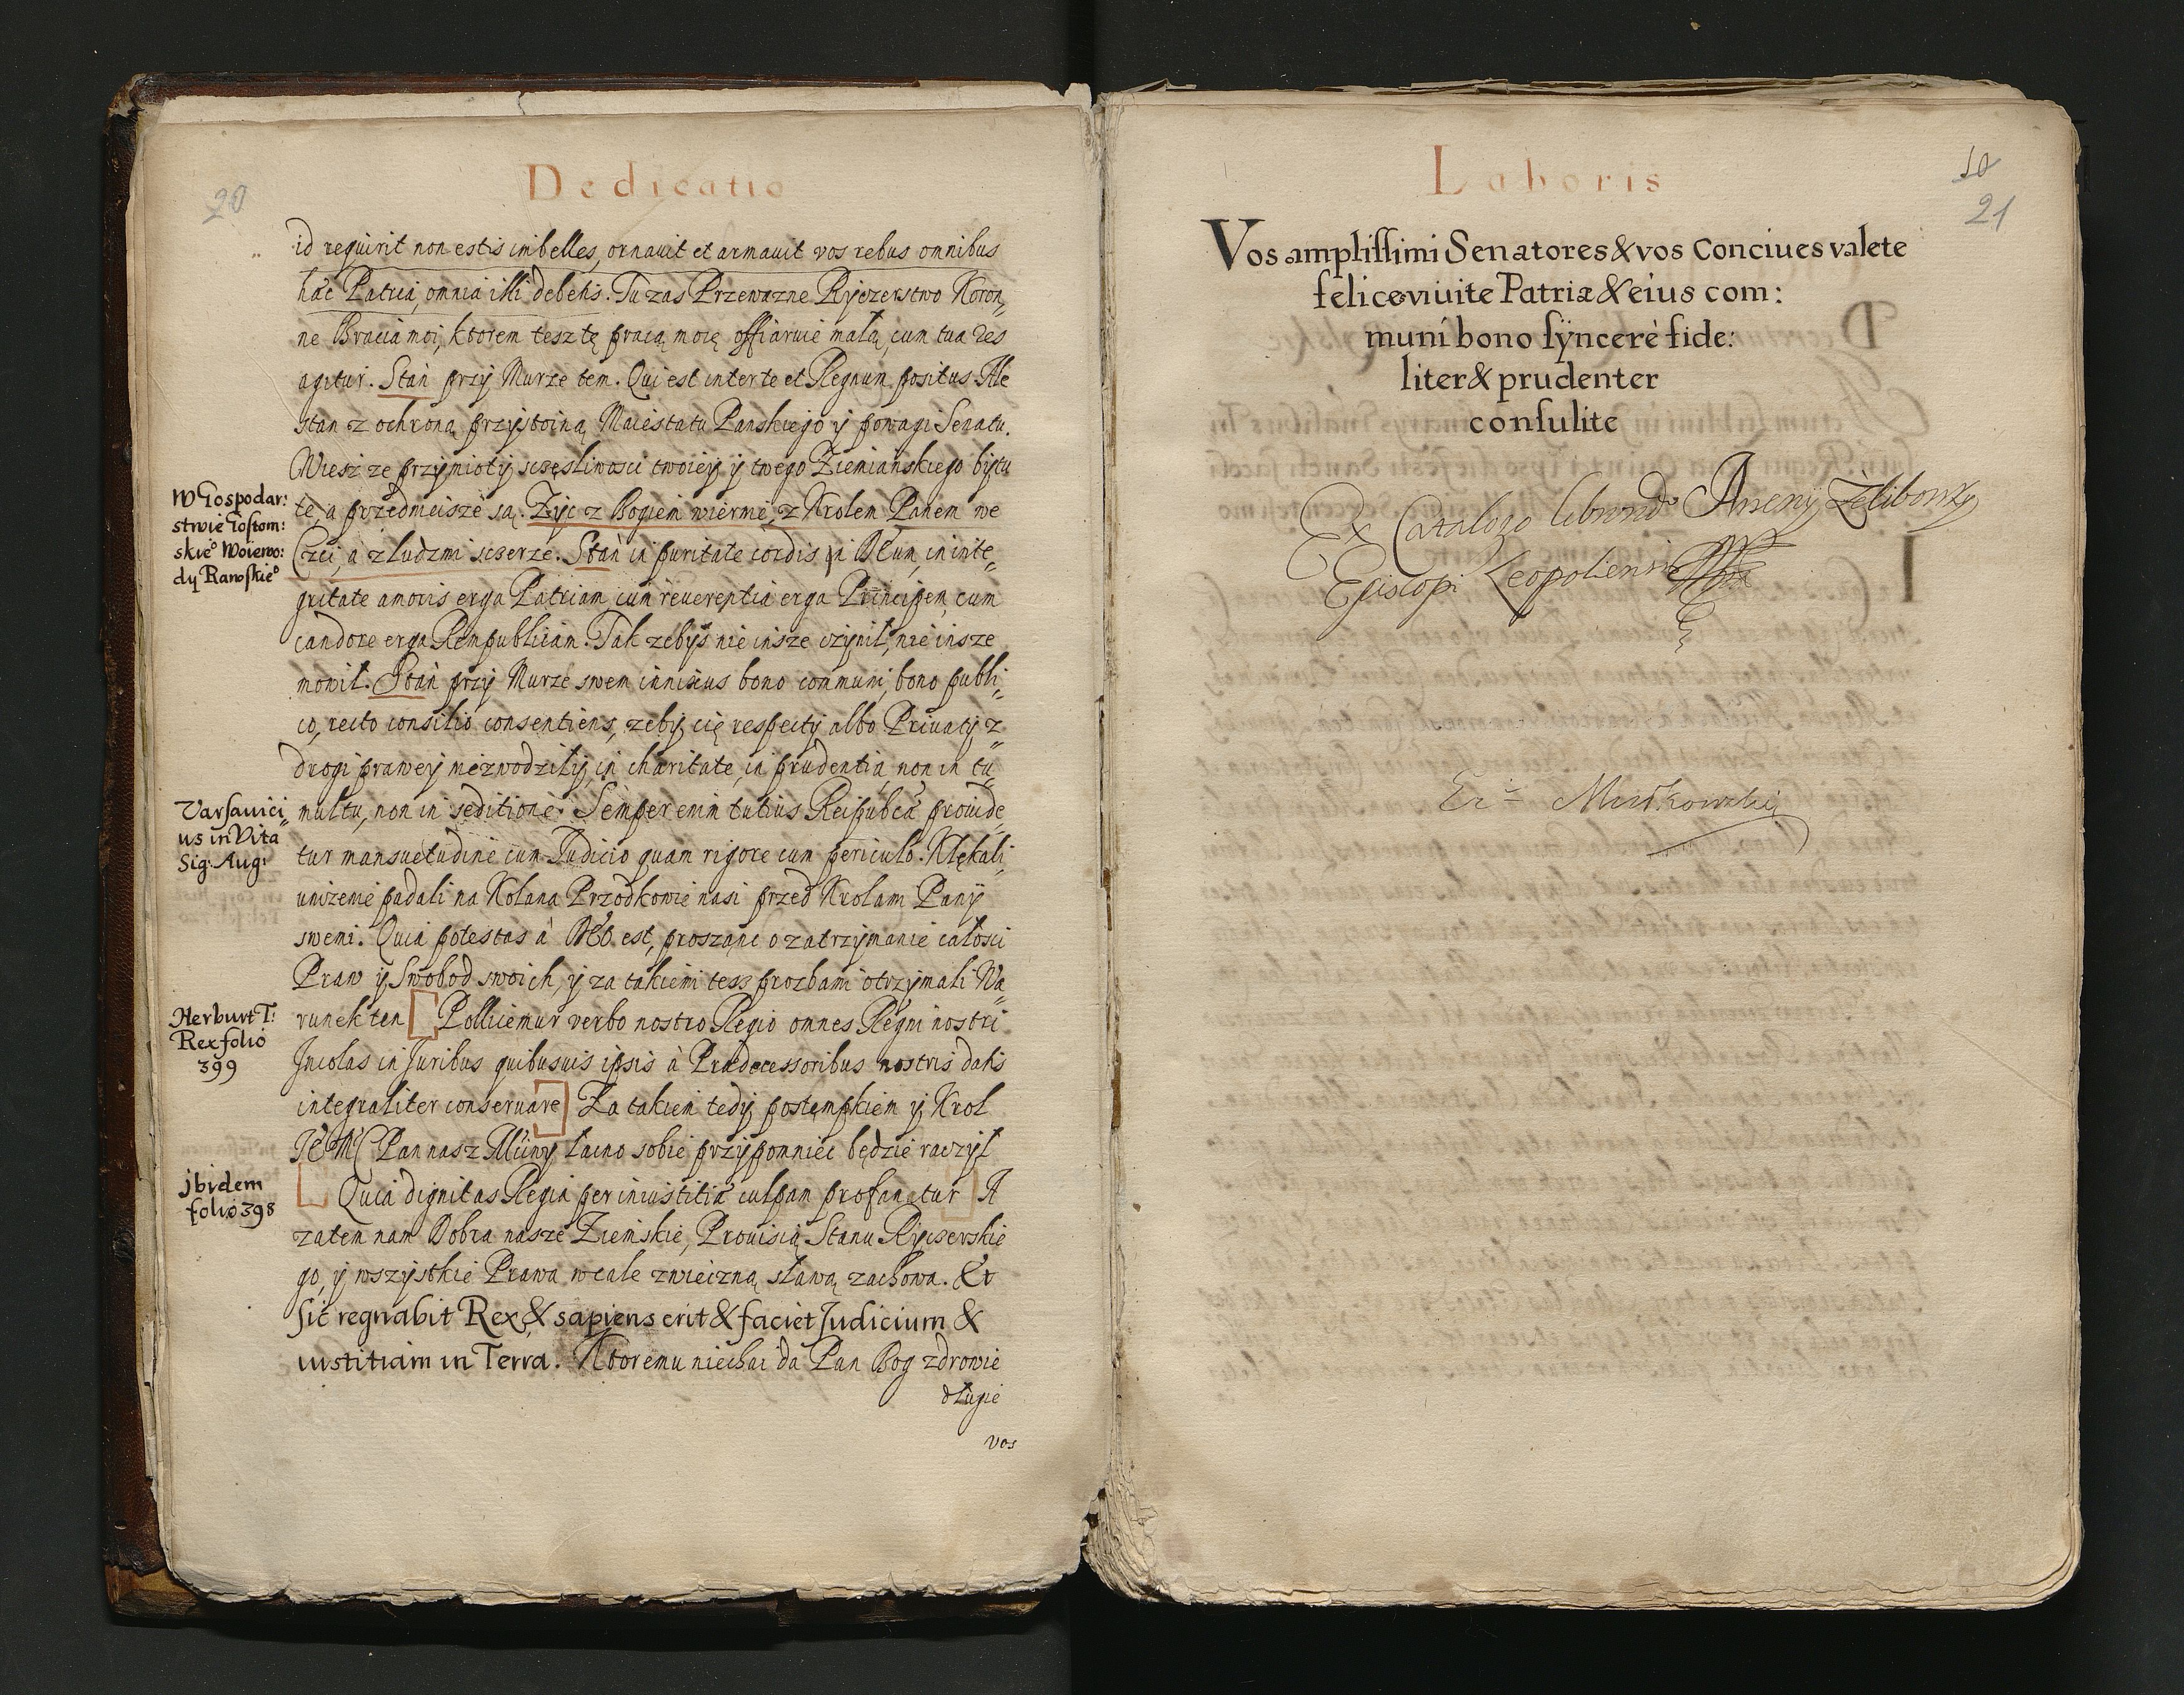 20
Dedicatio
id requirit non estis imbelles, ornauit et armauit vos rebus omnibus
hæc Patria, omnia illi debetis. Tu zas Przewazne Ryczerstwo Koron„
ne Bracia moi, ktorem tesz tę pracą moię offiaruie małą, cum tua res
agitur. Stań przy Murze tem. Qui est inter te et Regnum positus. Ale
stan z ochroną przystoiną Maiestatu Panskiego y powagi Senatu.
Wiesz ze przymioty sczęsliwosci twoiey y twego Ziemianskiego bytu
te, a przedmeisze są. Zyc z Bogiem wiernie, z Krolem Panem we
Czci, a z ludzmi sczerze. Stań in puritate cordis in Deum, in inte„
gritate amoris erga Patriam cum reuerentia erga Principem, cum
candore erga Rempublicam. Tak zebys nie insze czynił, nie insze
mowił. Stań przy Murze swem innixus bono communi, bono publi„
co, recto consilio consentiens, zeby cię respecty albo Priuaty z„
drogi prawey niezwodziły, in charitate, in prudentia, non in tu„
multu, non in seditione. Semper enim tutius Reipubcæ prouide„
tur mansuetudine cum Judicio quam rigore cum periculo. Klękali„
unizenie padali na Kolana Przodkowie nasi przed Krolami Pany
swemi. Quia potestas à Deo est, prosząnc o zatrzymanie całosci
Praw y Swobod swoich, y za takiemi tesz prozbami otrzymali Wa„
runek ten [Pollicemur verbo nostro Regio omnes Regni nostri
Jncolas in Juribus quibusuis ipsis à Prædecessoribus nostris datis
integraliter conseruare] Za takiem tedy postęmpkiem y Krol
JeMc Pan nasz Mciwy łacno sobie przypomniec będzie raczył
[Quia dignitas Regia per iniustitiæ culpam profanatur] A
zatem nam Dobra nasze Ziemskie, Prouisią Stanu Ryczerskie
go, y wszystkie Prawa wcale zwieczną sławą zachowa. Et
sic regnabit Rex & sapiens erit & faciet Judicium &
iustitiam in Terra. Ktoremu niechai da Pan Bog zdrowie
długie
vos
W Gospodar:
stwie Gostom:
skie° Woiewo:
dy Rawskie°
Varsauici„
us in Vita
Sig: Aug:
Herburt T:
Rex folio
399
jbidem
folio 398
Laboris
10
21
Vos amplissimi Senatores & vos Conciues valete
felice viuite Patriæ & eius com:
muni bono synceré fide:
liter & prudenter
consulite
Ex Catalogo librorũ Arseny Zeliborsky
Episcopi Leopoliensis